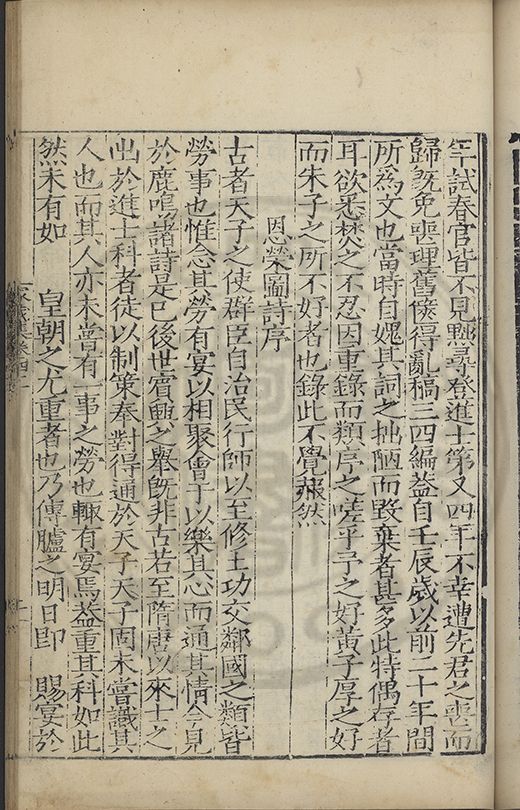 年試春官皆不見黜尋登進士第又四年不幸遭先君之喪而
歸旣免喪理舊篋得亂稿三四編蓋自壬辰歲以前二十年間
所爲文也當時自媿其詞之拙陋而毀棄者甚多此特偶存者
耳欲悉焚之不忍因重錄而類序之嗟乎予之好黃子厚之好
而朱子之所不好者也錄此不覺赧然
恩榮圖詩序
古者天子之使群臣自治民行師以至修土功交鄰國之類皆
勞事也惟念其勞有宴以相聚會于以樂其心而通其情今見
於鹿鳴諸詩是已後世賓興之舉旣非古若至隋唐以來士之
出於進士科者徒以制策奉對得通於天子天子固未嘗識其
人也而其人亦未嘗有一事之勞也輒有宴焉蓋重其科如此
然未有如 皇朝之尤重者也乃傳臚之明日即 賜宴於